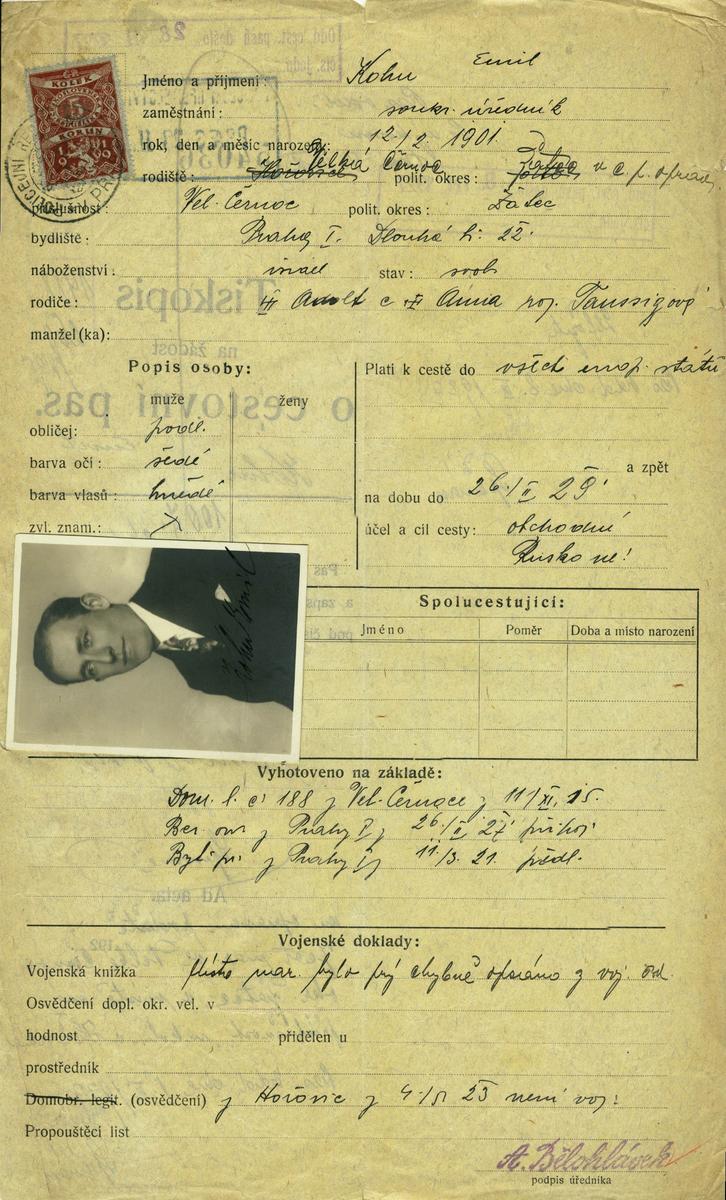 KOLEK
5
KORUN
1919
Jméno a příjmení: Kohn Emil
zaměstnání: soukr. úředník
rok, den a měsíc narození: 12./2. 1901.
rodiště: Velká Černoc polit. okres: Žatec v č. p. opraven
příslušnost: Vel. Černoc polit. okres: Žatec
bydliště: Praha I. Dlouhá tř. 22.
náboženství: israel stav: svob
rodiče: Adolf a Anna roz. Taussigová
manžel (ka):
Popis osoby:
muže ženy
obličej: podl.
barva očí: šedé
barva vlasů: hnědé
zvl. znam.:
Platí k cestě do všech evrop. států
a zpět
na dobu do 26./II 29
účel a cíl cesty: obchodní
Rusko ne!
Kohn Emil
Spolucestující:
Jméno Poměr Doba a místo narození
Vyhotoveno na základě:
Dom. l. č. 188 z Vel. Černoce z 11/XI. 15.
z Prahy I z 26./II 27
z Prahy z 11./3. 21. předl.
Vojenské doklady:
Vojenská knížka Místo nar. bylo prý chybně opsáno z voj.
Osvědčení dopl. okr. vel. v
hodnost přidělen u
prostředník
Domobr. legit. (osvědčení) z Hořovic z 23 není voj!
Propouštěcí list
A. Bělohlávek
podpis úředníka